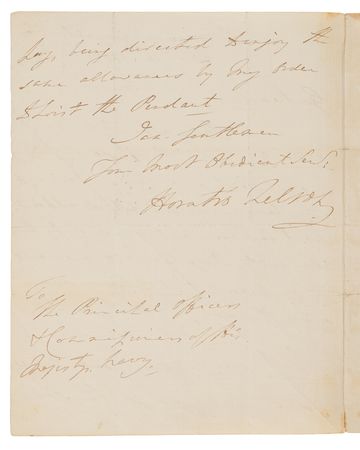 Pay, being directed to enjoy the
same allowances by my Order
to hoist the Pendant
I am Gentlemen
Your Most Obedient Serv:
Horatio Nelson
To
The Principal Officers
& Commissioners of His
Majestys Navy.